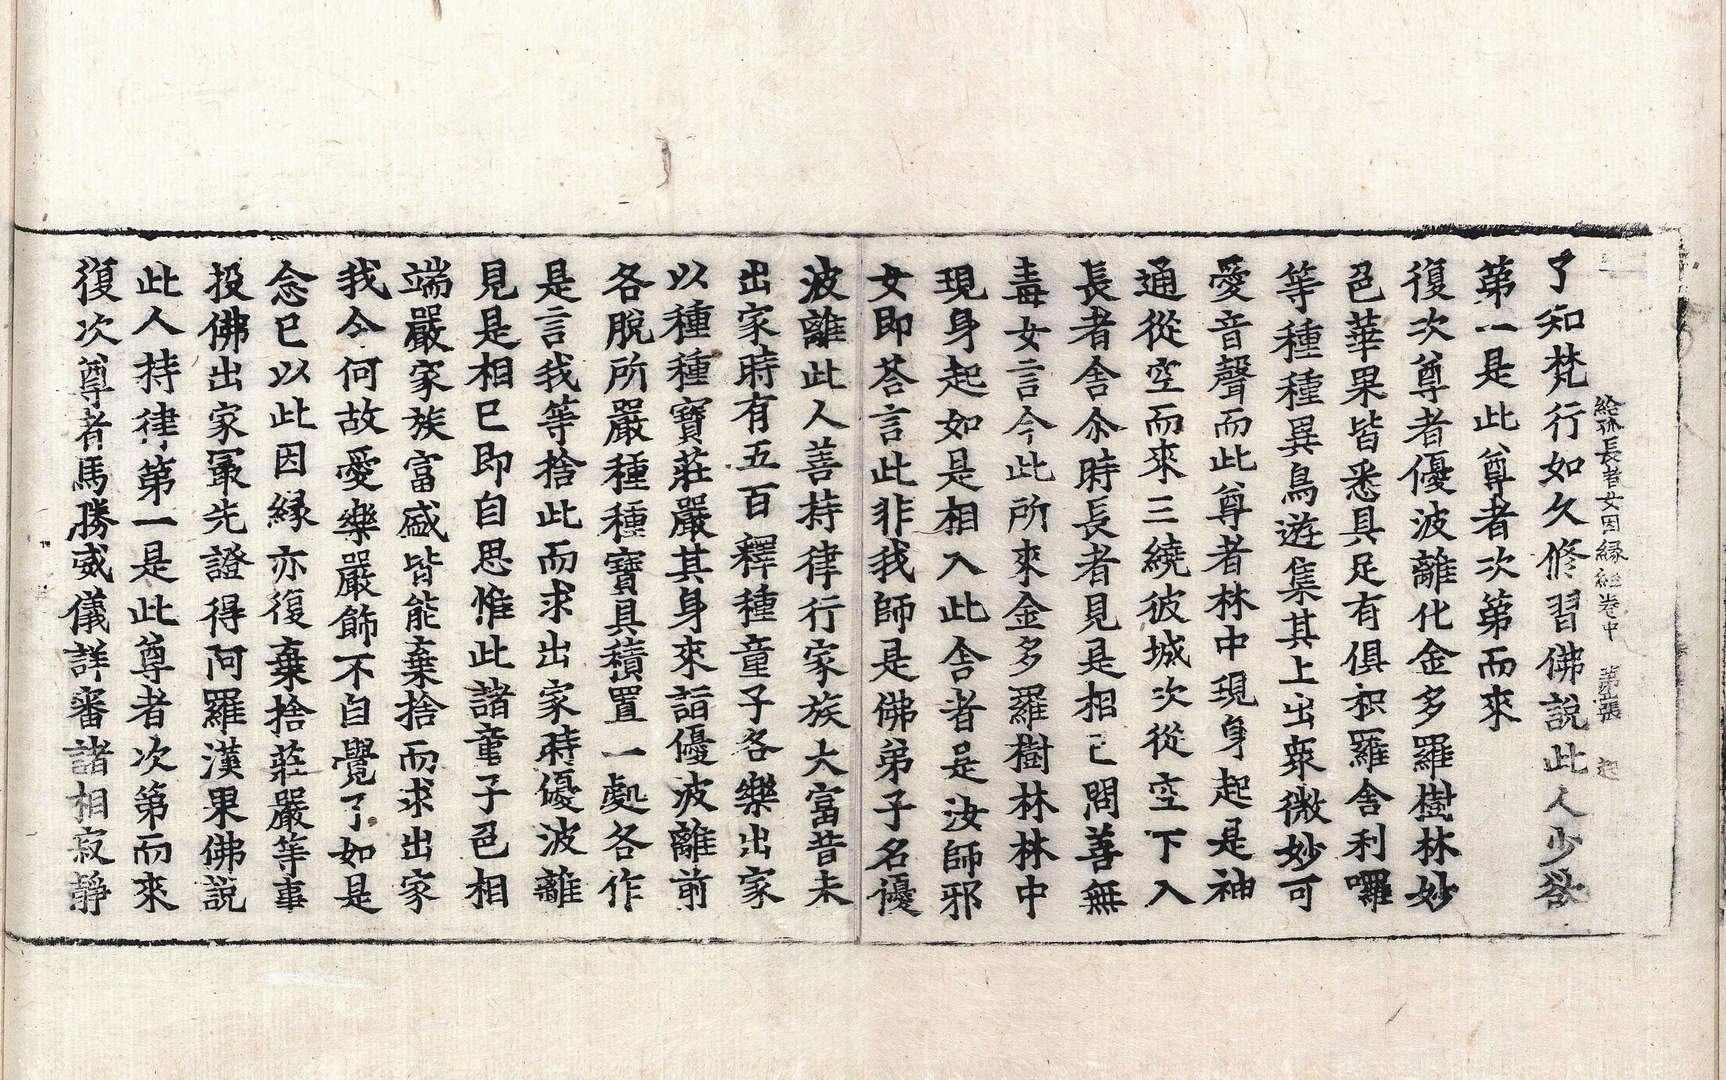 給孤長者女因緣經卷中 第五張 起
了知梵行如久修習佛說此人少欲
第一是此尊者次第而來
復次尊者優波離化金多羅樹林妙
色華果皆悉具足有俱枳羅舍利囉
等種種異鳥遊集其上出衆微妙可
愛音聲而此尊者林中現身起是神
通從空而來三繞彼城次從空下入
長者舍尒時長者見是相已問善無
毒女言今此所來金多羅樹林林中
現身起如是相入此舍者是汝師邪
女即荅言此非我師是佛弟子名優
波離此人善持律行家族大富昔未
出家時有五百釋種童子各樂出家
以種種寶莊嚴其身來詣優波離前
各脫所嚴種種寶具積置一處各作
是言我等捨此而求出家時優波離
見是相已即自思惟此諸童子色相
端嚴家族富盛皆能棄捨而求出家
我今何故愛樂嚴飾不自覺了如是
念已以此因緣亦復棄捨莊嚴等事
投佛出家冣先證得阿羅漢果佛說
此人持律第一是此尊者次第而來
復次尊者馬勝威儀詳審諸相寂靜